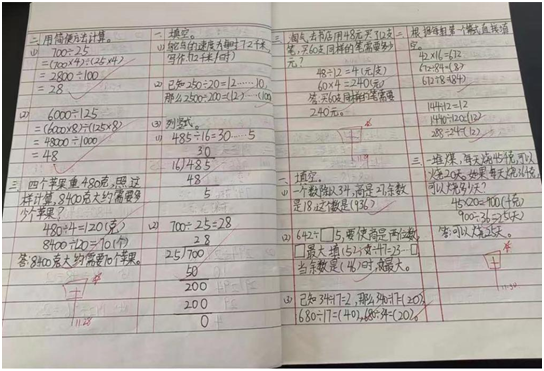 二.用简便方法计算。
(1) 700÷25
=(700×4)÷(25×4)
=2800÷100
=28
(2) 6000÷125
=(6000×8)÷(125×8)
=48000÷1000
=48
三.四个苹果重480克,照这
样计算,8400克大约需要多
少个苹果?
480÷4=120(克)
8400÷120=70(个)
答:8400克大约需要70个苹果。
11.28
一.填空。
写作(72千米/时)
(2) 已知250÷20=12……10,
那么2500÷200=(12)……(100)
(3) 列竖式。
(1) 485÷16=30……5
30
16/485
48
5
(2) 700÷25=28
28
25/700
50
200
200
0
三.淘气去书店用48元买了12支
笔,买60支同样的笔需要多少
元?
48÷12=4(元/支)
60×4=240(元)
答:买60支同样的笔需要
240元。
一.填空。
(1) 一个数除以34,商是27,余数
是18,这个数是(936)
(2) 642÷□5,要使商是两位数,
□最大填(5)
当余数是(46)时,
(3) 已知34÷17=2,那么340÷17=(20),
680÷17=(40),680÷34=(20)。
二.根据每组第一个算式直接填
空。
42×16=672
672÷84=(8)
672÷8=(84)
144÷12=12
1440÷120=(12)
288÷24=(12)
三.一堆煤,每天烧45千克,可以
烧20天,如果每天烧36千克,
可以烧多少天?
45×20=900(千克)
900÷36=25(天)
答:可以烧25天。